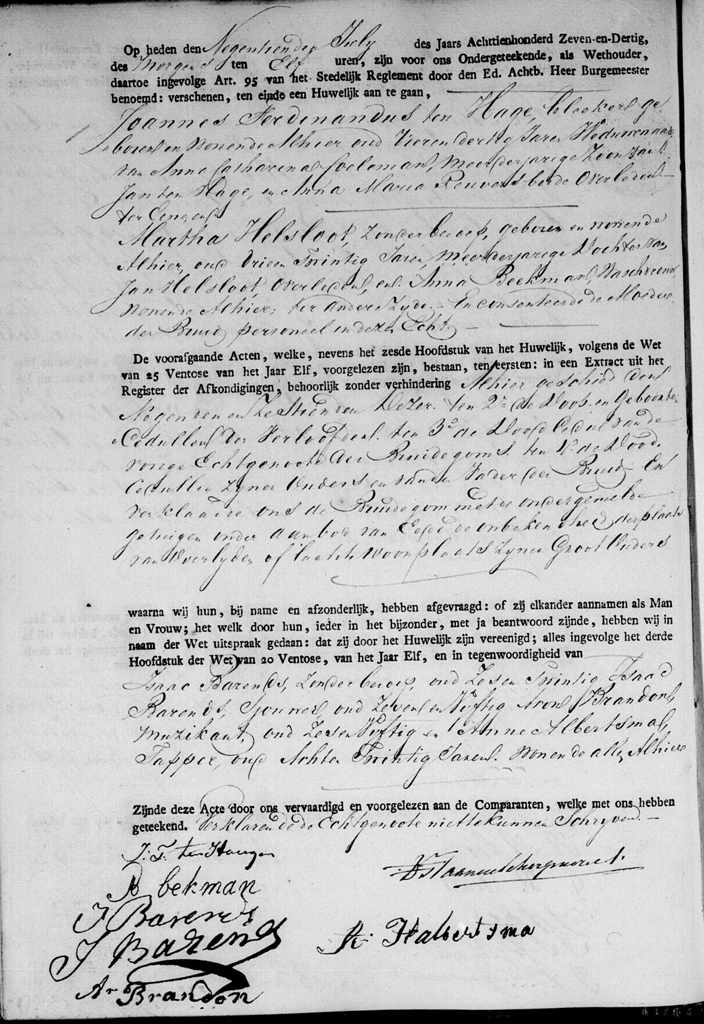 Op heden den Negentienden July des Jaars Achttienhonderd Zeven-en-Dertig,
des Morgens ten Elf uren, zijn voor ons Ondergeteekende, als Wethouder,
daartoe ingevolge Art. 95 van het Stedelijk Reglement door den Ed. Achtb. Heer Burgemeester
benoemd: verschenen, ten einde een Huwelijk aan te gaan,
Joannes Ferdinandus ten Hage, bleeker, ge
boren en wonende Alhier oud Vier en dertig Jaren Weduwenaar
van Anna Catharina Coeleman, meerderjarige Zoon van
Jan ten Hage, en Anna Maria Reuvers beide Overleden
ter Eenre en
Martha Helsloot, zonder beroep, geboren en wonende
Alhier, oud Drie en Twintig Jaren, meerderjarige Dochter van
Jan Helsloot Overleden en Anna Beekman, Naaischreuwe
wonende Alhier: ter andere Zyde. En consenteerde de Moeder
der Bruid personeel in deze Echt
De voorafgaande Acten, welke, nevens het zesde Hoofdstuk van het Huwelijk, volgens de Wet
van 25 Ventose van het Jaar Elf, voorgelezen zijn, bestaan, ten eersten: in een Extract uit het
Register der Afkondigingen, behoorlijk zonder verhindering Alhier geschied den
Negenden en Zestienden Dezer. ten 2e. de Doop en Geboorte
Cedullen der Verloofden. ten 3e de Dood Cedul van de
vorige Echtgenoote des Bruidegoms ten 4e de Dood
Cedullen zyner Ouders en van den Vader der Bruid En
verklaarde ons de Bruidegom met de ondergemelde
getuigen onder aanbod van Eede de onbekendheid der plaats
van Overlyden of laatste woonplaats zyner Groot Ouders
waarna wij hun, bij name en afzonderlijk, hebben afgevraagd: of zij elkander aannamen als Man
en Vrouw; het welk door hun, ieder in het bijzonder, met ja beantwoord zijnde, hebben wij in
naam der Wet uitspraak gedaan: dat zij door het Huwelijk zijn vereenigd; alles ingevolge het derde
Hoofdstuk der Wet van 20 Ventose, van het Jaar Elf, en in tegenwoordigheid van
Isaac Barends, Zonder beroep, oud Zes en Twintig Isaac
Barends, Sjouwer oud Zeven en Vyftig Aron Brandon,
Muzikant oud Zes en Vyftig en Anne Albertsma,
Tapper, oud Acht en Twintig Jaren. wonende alle Alhier
Zijnde deze Acte door ons vervaardigd en voorgelezen aan de Comparanten, welke met ons hebben
geteekend. Verklarende de Echtgenoote niet te kunnen Schryven.
J. F. ten Haagen
A bekman
J Barends
J Barends
Ar Brandon
A. Halbertsma